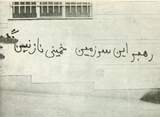 رهبر این سرزمین خمینی نازنین